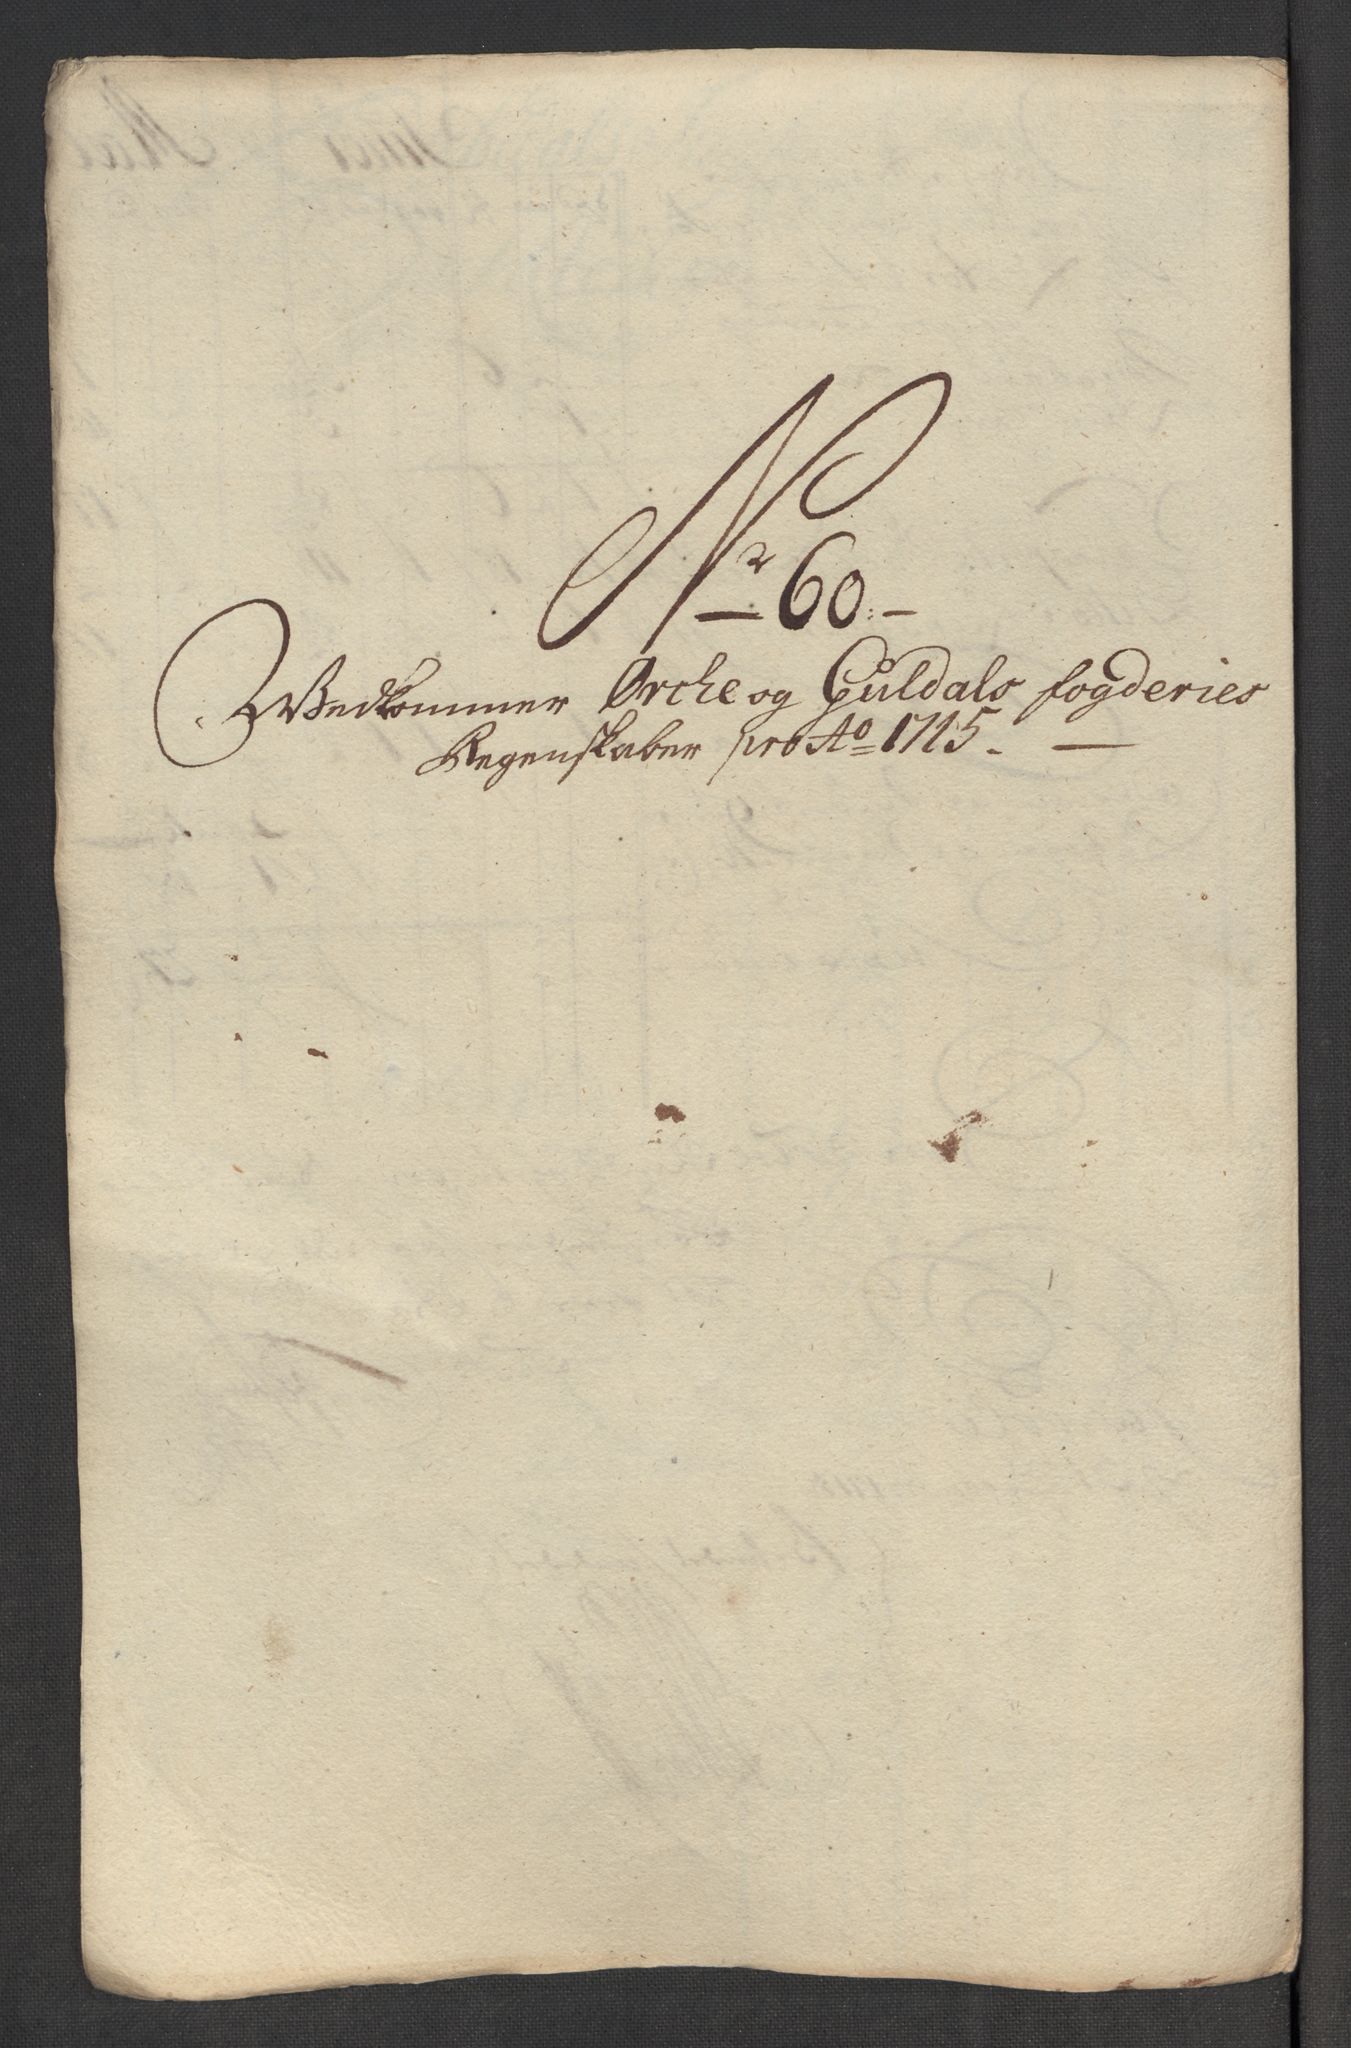 Nr 60.
Vedkommer Orche og Guldals fogderies
Regenskaber pro Ao 1715.